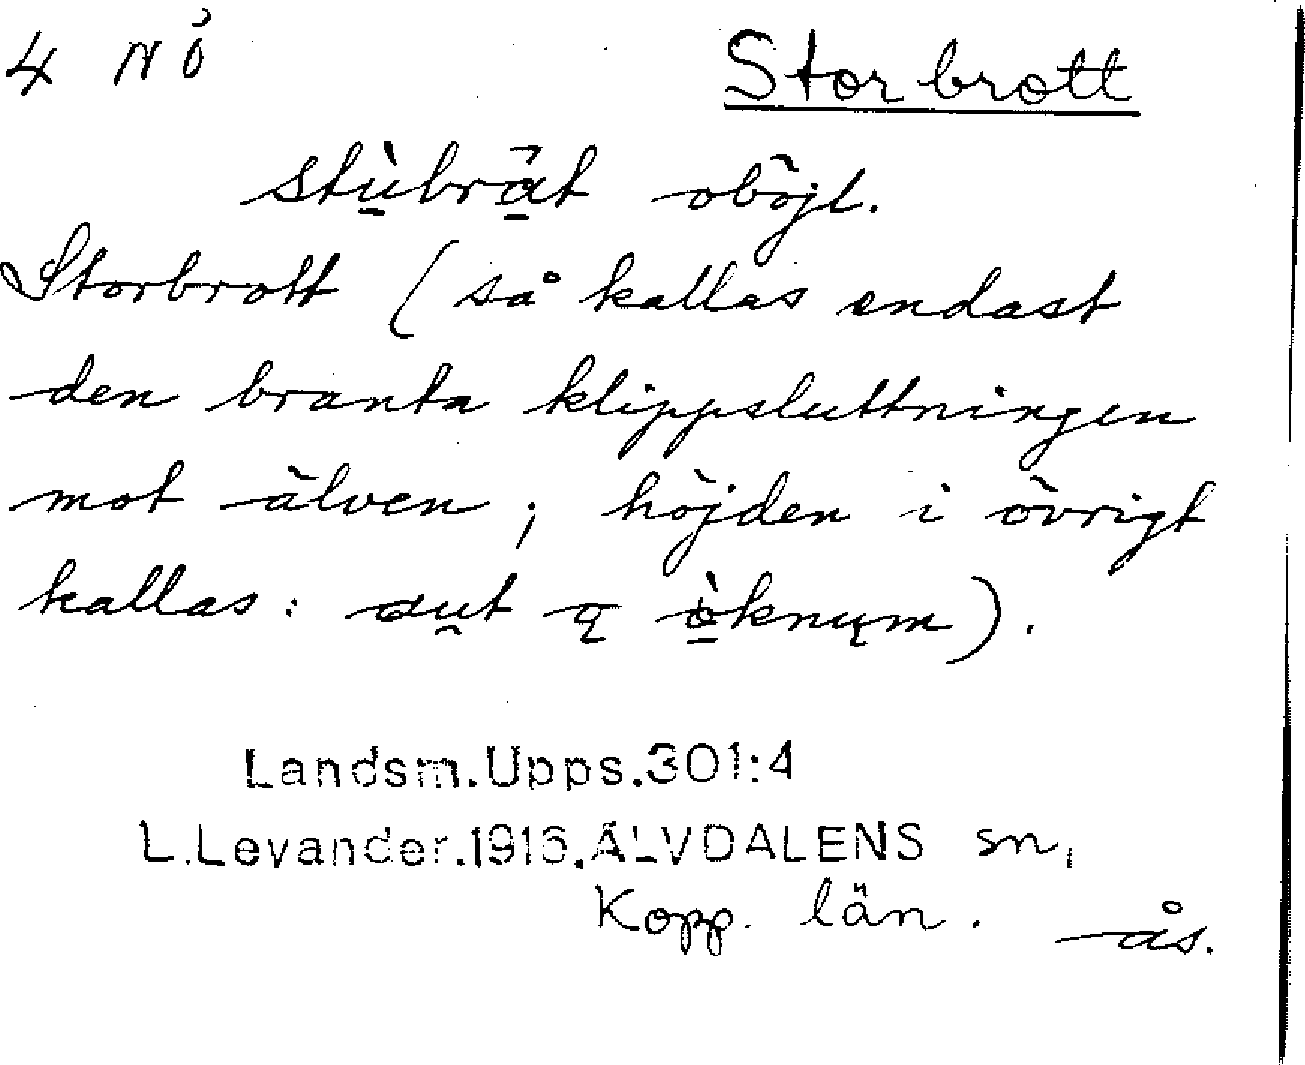 4 NÖ
Storbrott
stùbrāt oböjl.
Storbrott (så kallas endast
den branta klippsluttningen
mot älven; höjden i övrigt
kallas: aut ą òknum).
Landsm.Upps.301:4
L.Levander.1916.ÄLVDALENS sn,
Kopp. län. ås.